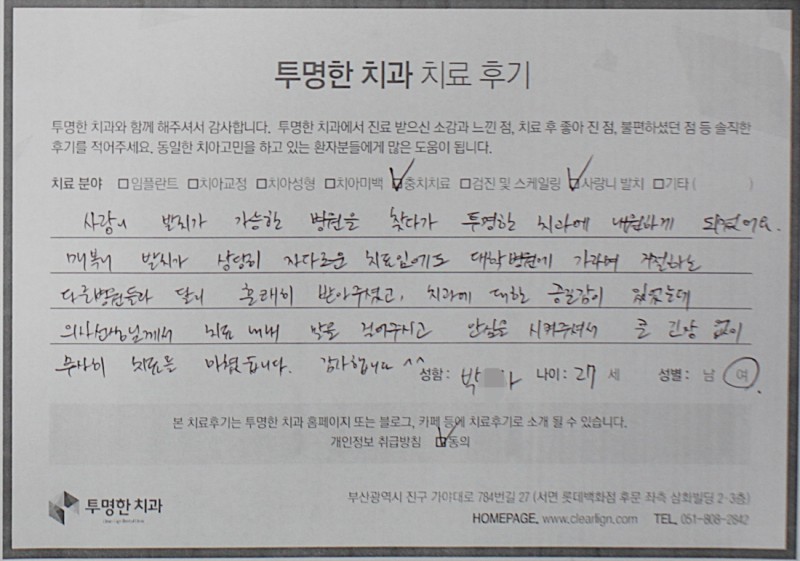 투명한 치과 치료 후기
투명한 치과와 함께 해주셔서 감사합니다. 투명한 치과에서 진료 받으신 소감과 느낀 점, 치료 후 좋아 진 점, 불편하셨던 점 등 솔직한
후기를 적어주세요. 동일한 치아고민을 하고 있는 환자분들에게 많은 도움이 됩니다.
치료 분야 □임플란트 □치아교정 □치아성형 □치아미백 ☑충치치료 □검진 및 스케일링 ☑사랑니 발치 □기타 ( )
사랑니 발치가 가능한 병원을 찾다가 투명한 치과에 내원하게 되었어요.
매복니 발치가 상당히 까다로운 치료임에도 대학병원에 가라며 거절하는
다른병원들과 달리 흔쾌히 받아주셨고, 치과에 대한 공포감이 있었는데
의사선생님께서 치료 내내 말을 걸어주시고 안심을 시켜주셔서 큰 긴장 없이
무사히 치료를 마쳤습니다. 감사합니다 ^^ 성함 : 박 나이 : 27 세 성별 : 남 여
본 치료후기는 투명한 치과 홈페이지 또는 블로그, 카페 등에 치료후기로 소개 될 수 있습니다.
개인정보 취급방침 ☑동의
투명한 치과
부산광역시 진구 가야대로 784번길 27 (서면 롯데백화점 후문 좌측 삼화빌딩 2-3층)
HOMEPAGE. www.clearlign.com TEL. 051-808-2842